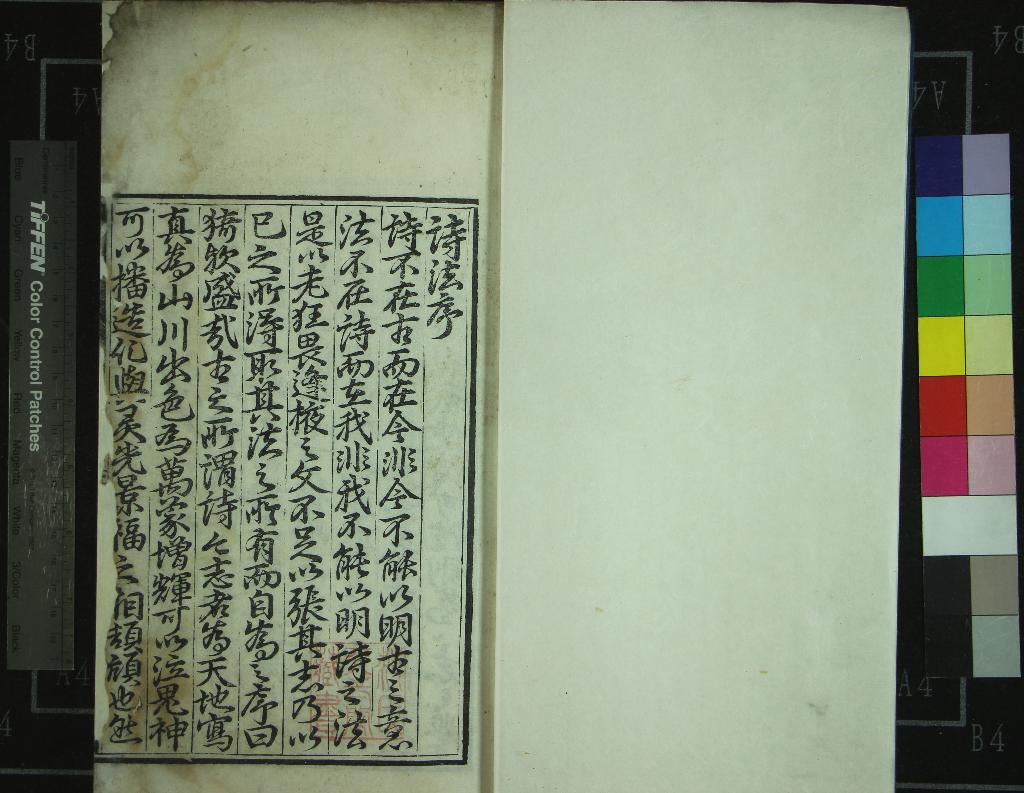 詩法序
詩不在古而在今非今不能以明古之意
法不在詩而在我非我不能以明詩之法
是以老狂畏逢掖之文不足以張其志乃以
已之所得取其法之所有而自為之序曰
猗欤盛哉古之所謂詩言志者為天地寫
真為山川出色為萬彙增輝可以泣鬼神
可以播造化與光景福之頡頏也然
TIFFEN Color Control Patches
Blue Cyan Green Yellow Red Magenta White 3/Color Black
B4
A4
B4
A4
A4
B4